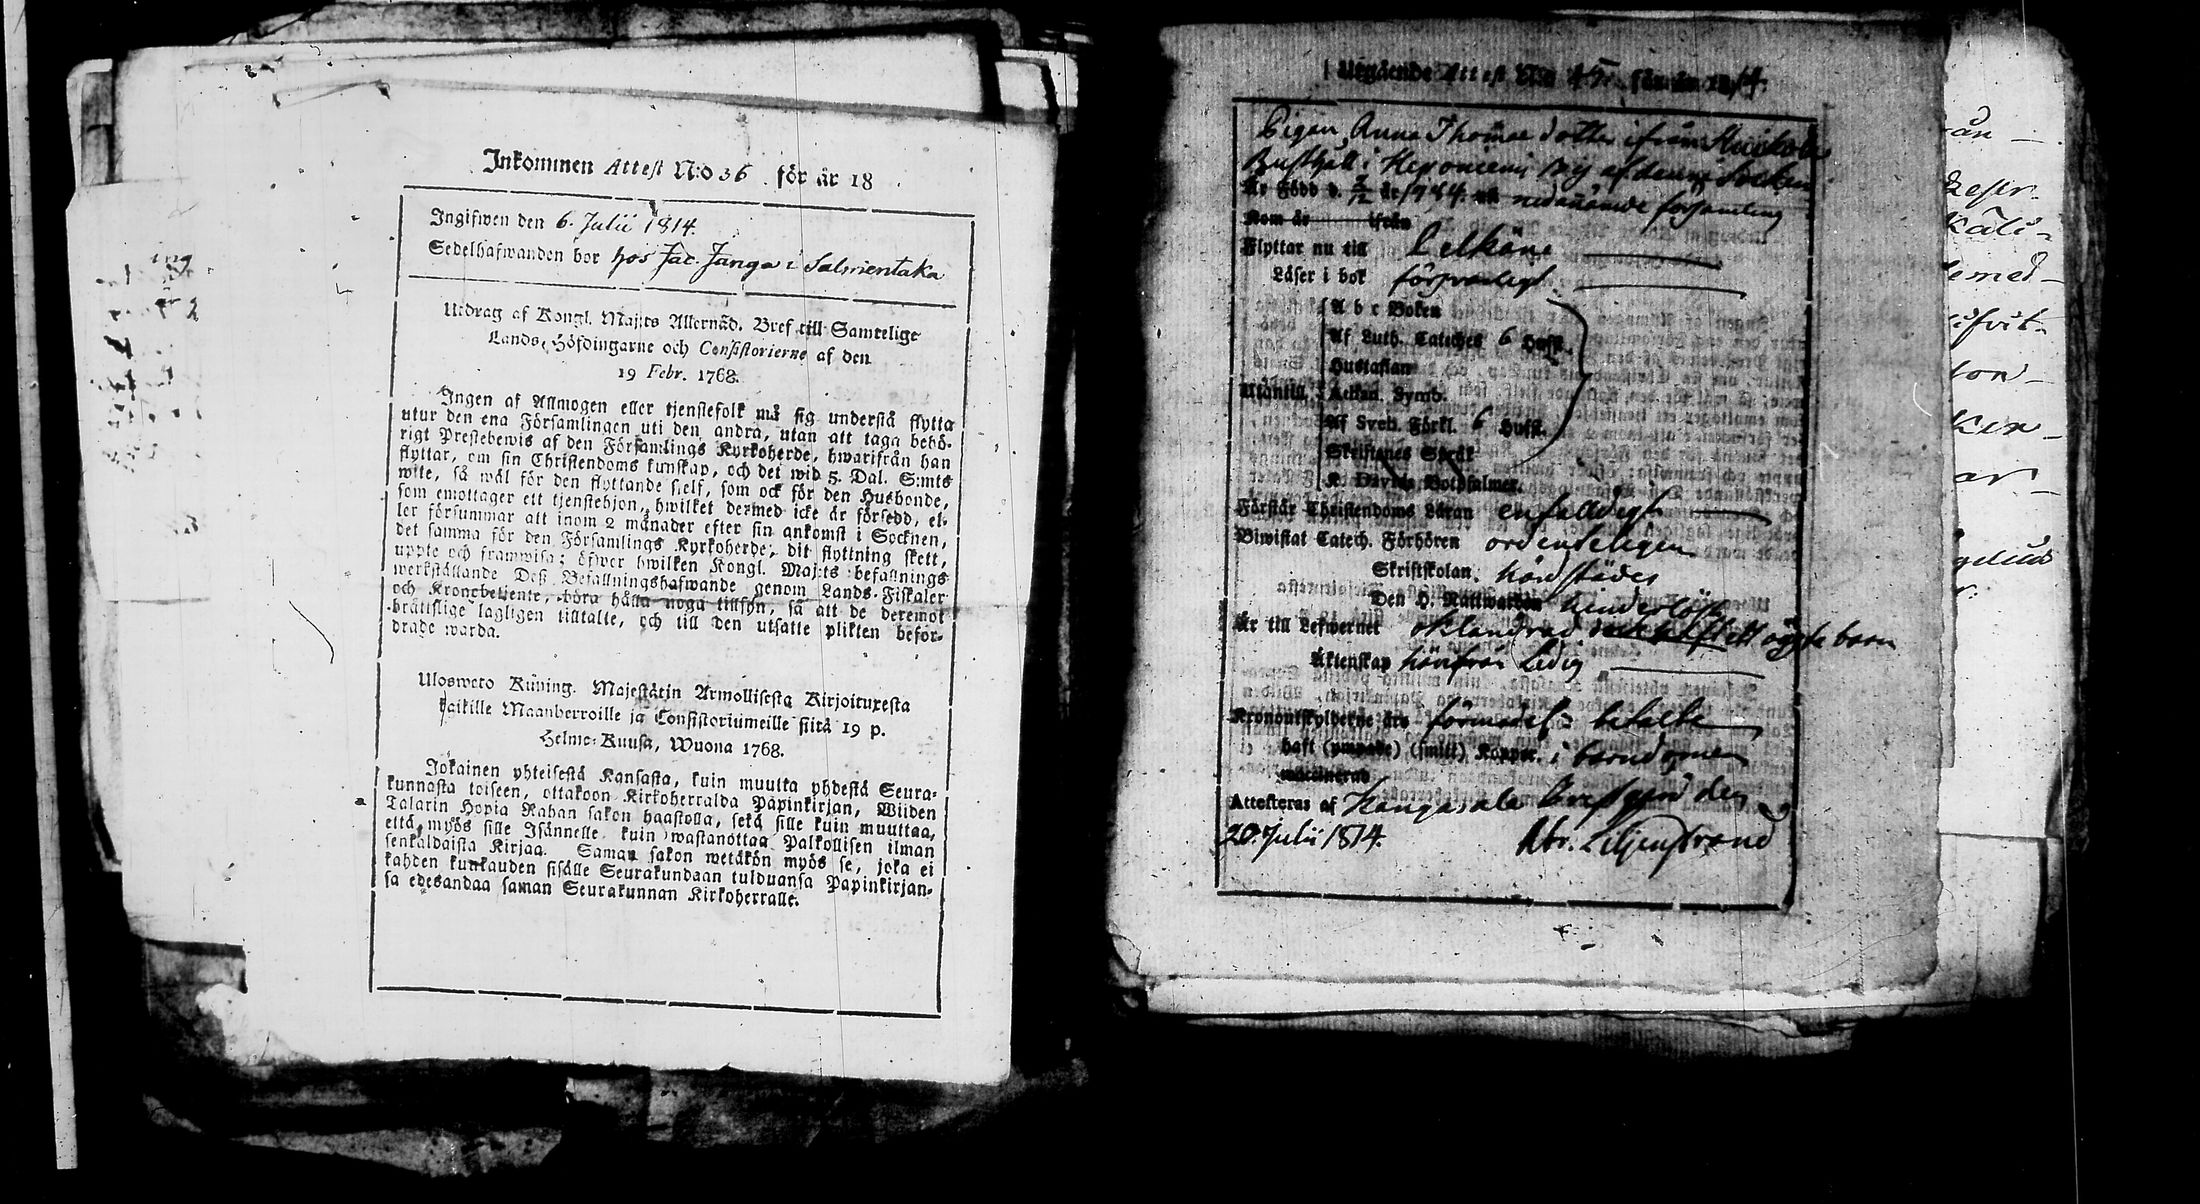 Inkommen Attest N:o 36 för år 18
Ingifwen den 6. Julii 1814
Sedelhafwanden bor hos Jac. Janga i Salmentaka
Utdrag af Kongl. Maj:ts Allernåd. Bref till Samtelige
Lands-Höfdingarne och Consistorierne af den
19 Febr. 1768.
Ingen af Allmogen eller tjenstefolk må sig understå flytta
utur den ena Församlingen uti den andra, utan att taga behö-
rigt Prestebewis af den Församlings Kyrkoherde, hwarifrån han
flyttar, om sin Christendoms kunskap, och det wid 5. Dal. S:mts
wite, så wäl för den flyttande sjelf, som ock för den Husbonde,
som emottager ett tjenstehjon, hwilket dermed icke är försedd, el-
ler försummar att inom 2 månader efter sin ankomst i Socknen,
det samma för den Församlings Kyrkoherde, dit flyttning skett,
uppte och framwisa; öfwer hwilken Kongl. Maj:ts befallnings
werkställande Deß Befallningshafwande genom Lands-Fiskaler
och Kronobetjente, böra hålla noga tillsyn, så att de deremot
brättslige lagligen tilltalte, och till den utsatte plikten befor-
drade warda.
Uloswcto Kuning. Majestätin Armollisesta Kirjoituxesta
kaikille Maanherroille ja Consistoriumeille siitä 19 p.
Helme-Kuusa, Wuona 1768.
Jokainen yhteisestä Kansasta, kuin muutta yhdestä Seura-
kunnasta toiseen, ottakoon Kirkoherralda Papinkirjan, Wiiden
Talarin Hopia Rahan sakon haastolla, sekä sille kuin muuttaa,
että myös sille Isännelle kuin wastanottaa Palkollisen ilman
senkaldaista Kirjaa. Saman sakon wetäkön myös se, joka ei
kahden kuukauden sisälle Seurakundaan tulduansa Papinkirjan-
sa edesandaa saman Seurakunnan Kirkoherralle.
Utgående Attest N:o 45 för år 1814.
Pigan Anna Thomae dotter ifrån
Rusthåll i Heponiemi by af denna Socken
Är Född d. 7/12 år 1784. nedanämde församling
Kom år ifrån
Flyttar nu till Pelkäne
Läser i bok försvarligt.
A b c Boken
Af Luth. Catechês 6 Hufst.
Hustaflan
Utantill, Athan. Symb.
Af Sveb. Förkl. 6 Hufst.
Skriftenes Språk
K. Davids Botpsalmer.
Förstår Christendoms Läran enfalldigt
Biwistat Catech. Förhören ordenteligen
Skriftskolan.
Den H. Nattwarden hinderlöst
Är till Lefwernet oklandrad ett ögta barn
Äktenskap härifrån Ledig
Kronoutskylderne åro betalte
haft (ympade) (smitt) Koppor. i barndomen
waccinerad
Attesteras af Kangasala Prestgård den
20. Julii 1814. Abr. Liljenstrand